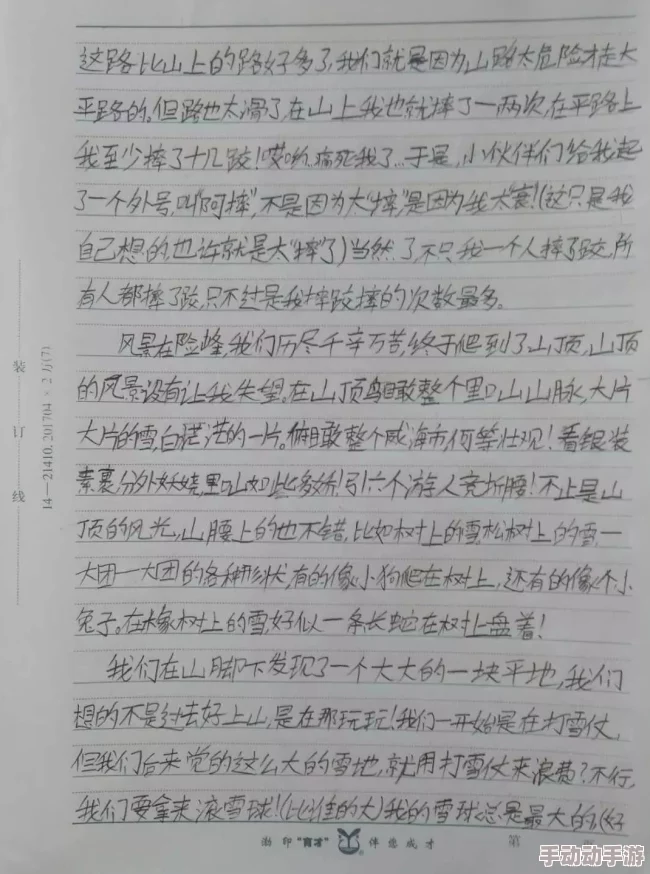 这路比山上的路好多了,我们就是因为山路太危险才走大
平路的。但路也太滑了,在山上我也就摔了一两次,在平路上
我至少摔了十几跤!哎哟,痛死我了...于是,小伙伴们给我起
了一个外号,叫"阿摔",不是因为太"摔",是因为我太"衰"!(这只是我
自己想的,也许就是太"摔"了)当然了,不只我一个人摔了跤,所
有人都摔了跤,只不过是我摔跤摔的次数最多。
风景在险峰,我们历尽千辛万苦,终于爬到了山顶,山顶
的风景没有让我失望。在山顶鸟瞰整个里口山山脉,大片
大片的雪,白茫茫的一片。俯瞰整个威海市,何等壮观!看银装
素裹,分外妖娆,里口山如此多娇!引六个游人竞折腰!不止是山
顶的风光,山腰上的也不错,比如树上的雪。松树上的雪,一
大团一大团的各种形状,有的像小狗爬在树上,还有的像个小
兔子。在橡树上的雪,好似一条长蛇在树上盘着!
我们在山脚下发现了一个大大的一块平地,我们
想的不是过去好上山,是在那玩玩!我们一开始是在打雪仗,
但我们后来觉的这么大的雪地,就用打雪仗来浪费?不行,
我们要拿来滚雪球!(比谁的大)我的雪球总是最大的(好
装
订
线
14—21410,201704×2万(7)
渤印"育才" 伴您成才
第
手动动手游